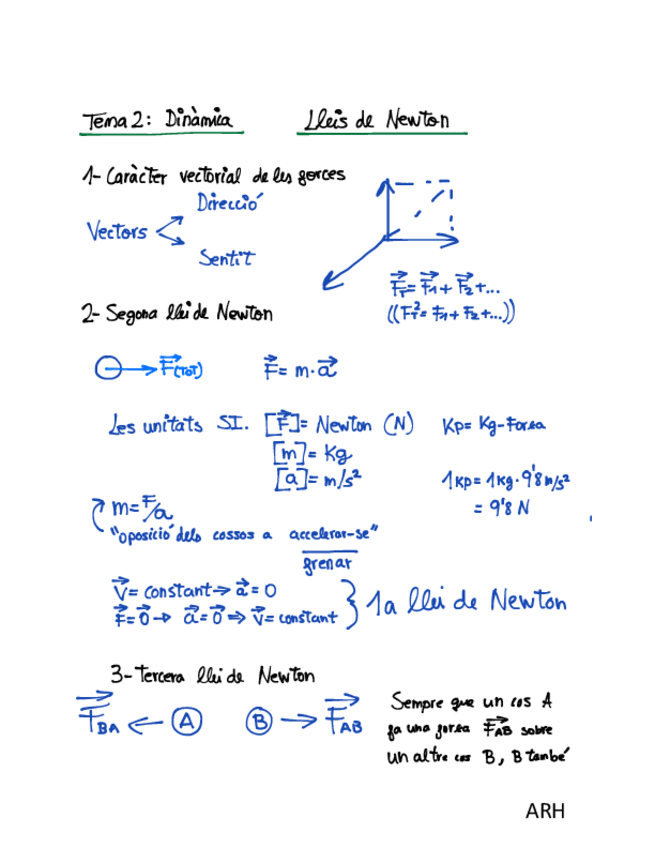 Tema 2: Dinàmica Lleis de Newton
1- Caràcter vectorial de les forces
Vectors Direcció
Sentit
F⃗T = F⃗1 + F⃗2 + ...
((FT² = F1 + F2 + ...))
2- Segona llei de Newton
F⃗(TOT) F⃗ = m · a⃗
Les unitats SI. [F⃗] = Newton (N) Kp = Kg-Força
[m] = Kg
[a] = m/s² 1Kp = 1Kg · 9'8 m/s²
= 9'8 N
m = F/a
"oposició dels cossos a accelerar-se"
frenar
V⃗ = constant → a⃗ = 0
F⃗ = 0⃗ → a⃗ = 0⃗ ⇒ V⃗ = constant } 1a llei de Newton
3- Tercera llei de Newton
F⃗BA ← A B → F⃗AB
Sempre que un cos A
fa una força F⃗AB sobre
un altre cos B, B també
ARH